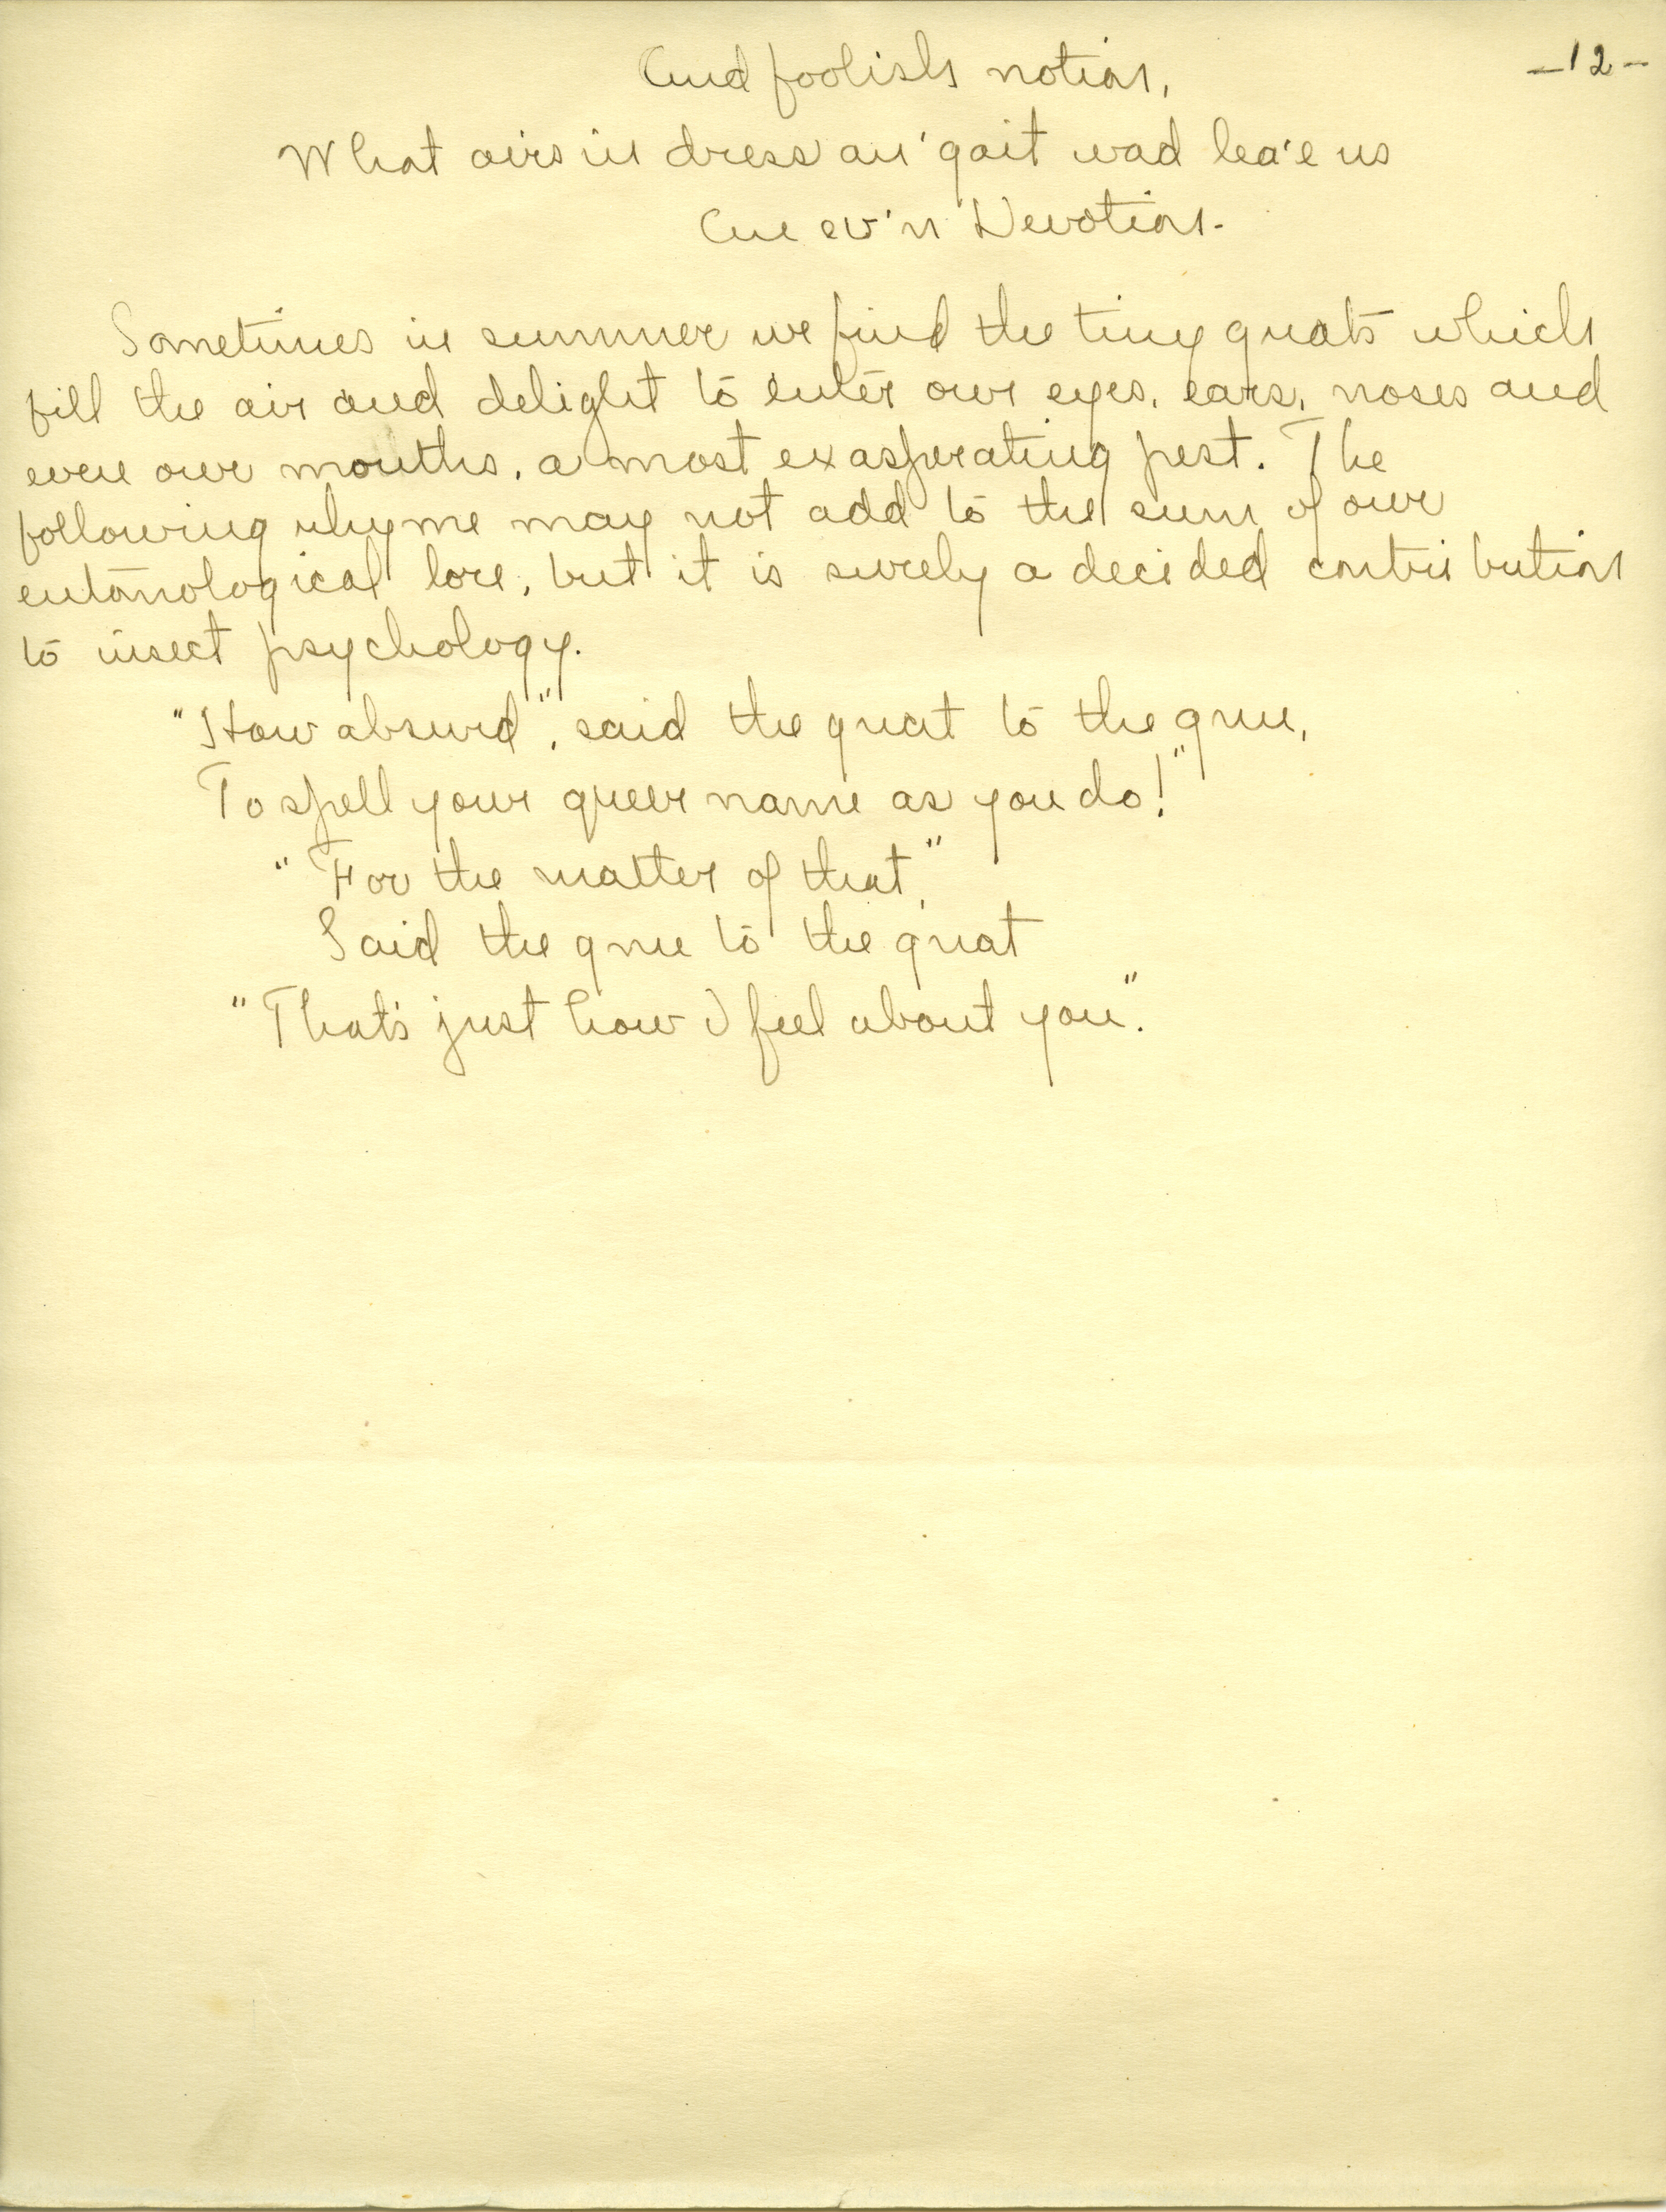 And foolish notion,
-12-
What airs in dress an' gait wad lea'e us
An ev'n Devotion.
Sometimes in summer we find the tiny gnats which
fill the air and delight to enter our eyes, ears, noses and
even our mouths, a most exasperating pest. The
following rhyme may not add to the sum of our
entomological lore, but it is surely a decided contribution
to insect psychology.
"How absurd", said the gnat to the gnu,
To spell your queer name as you do!"
"For the matter of that,"
Said the gnu to the gnat
"That's just how I feel about you".